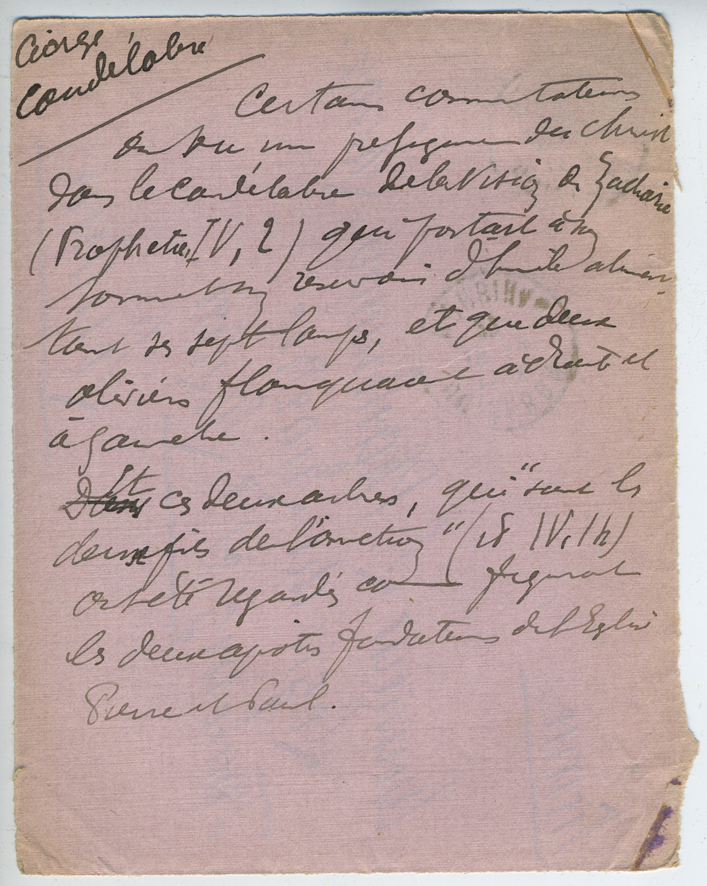 Cierge
Candélabre
Certains commentateurs
ont vu une préfigure du Christ
dans le candélabre de la Vision de Zacharie
(Prophéties IV, 2) qui portait à son
sommet un réservoir d'huile alimen-
tant ses sept lamps, et que deux
oliviers flanquaient à droite et
à gauche.
Et ces deux arbres, qui "sont les
deux fils de l'onction" (id IV, 14)
ont été regardés co figurant
les deux apotres fondateurs de l'Eglise
Pierre et Paul.